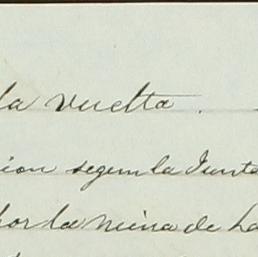 la vuelta.
cion segun la Junta
por la mina de La